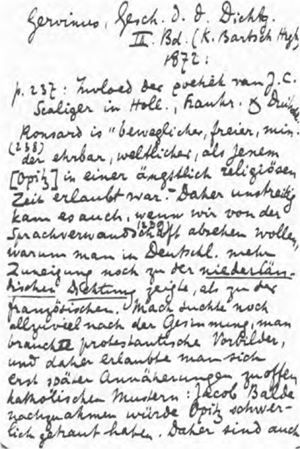 Gervinus, Gesch. d. d. Dichtg.
III. Bd. (K. Bartsch Hrg.
1872:
p. 237: Invloed der poëtiek van J.C.
Scaliger in Holl., Frankr. & Duitsl.
Ronsard is "beweglicher, freier, min-
(238)
der ehrbar, weltlicher, als jenem
[Opitz] in einer ängstlich religiösen
Zeit erlaubt war. - Daher unstreitig
kam es auch, wenn wir von der
Sprachverwandschaft absehen wollen,
warum man in Deutschl. mehr
Zuneigung noch zu der niederlän-
dischen Dichtung zeigte, als zu der
französischen. Man suchte noch
allzuviel nach der Gesinnung, man
brauchte protestantische Vorbilder,
und daher erlaubte man sich
erst später Annäherungen zu offen
katholischen Mustern: Jacob Balde
nachzuahmen würde Opitz schwer-
lich getraut haben. Daher sind auch